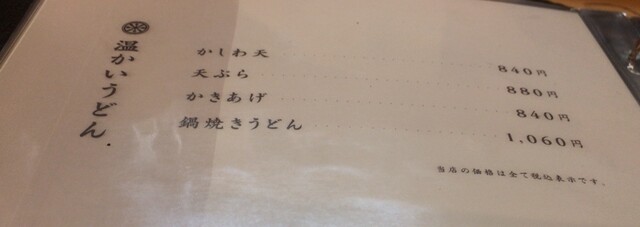 温かいうどん.
かしわ天 840円
天ぷら 880円
かきあげ 840円
鍋焼きうどん 1,060円
当店の価格は全て税込表示です.